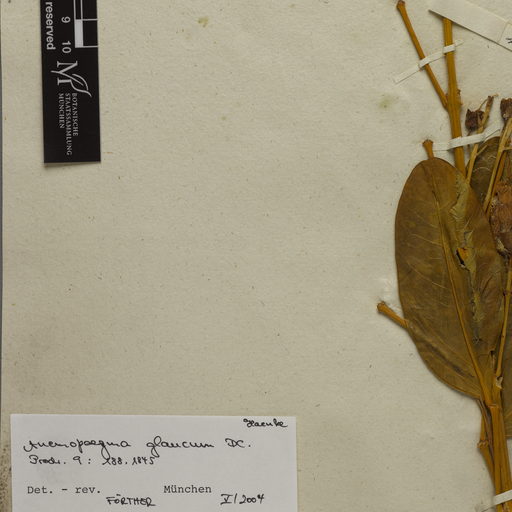 reserved
9 10
BOTANISCHE
STAATSSAMMLUNG
MÜNCHEN
Haenke
Anemopaegma glaucum DC.
Prodr. 9: 188. 1845
Det. - rev. FÖRTHER München V/2004